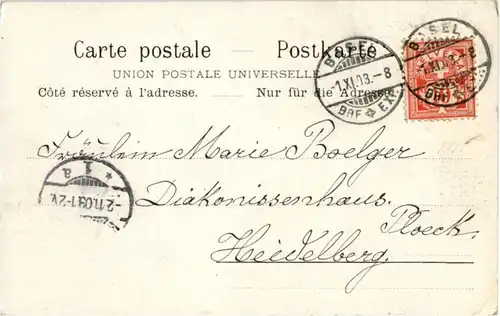 Carte postale — Postkarte
UNION POSTALE UNIVERSELLE
Côté réservé à l'adresse. Nur für die Adresse.
BASEL
-1.XI.03.-8
BRF EXP
BASEL
BRF
Fräulein Marie Boelger
Diakonissenhaus.
Ploeck.
Heidelberg.
* 1 a
-2.11.03.1-2V.